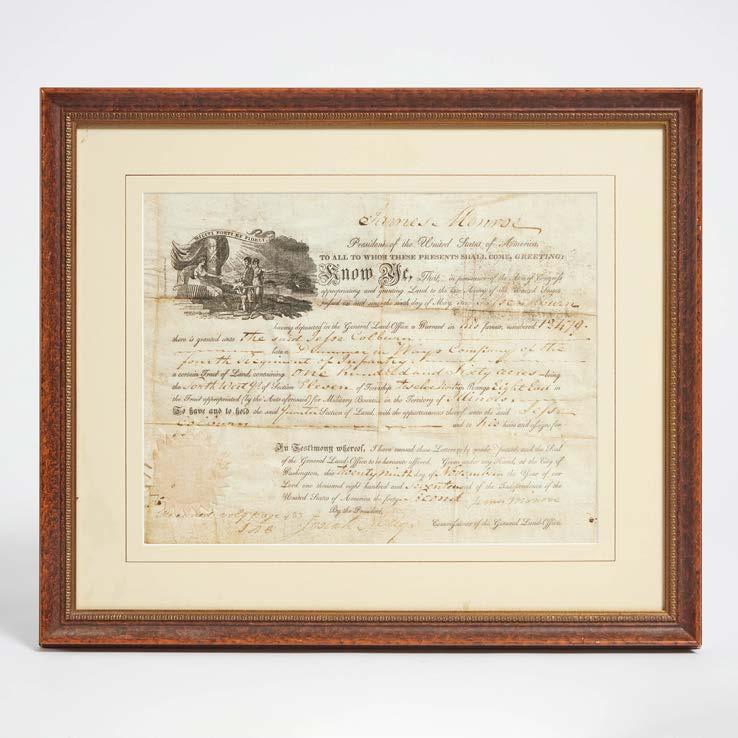 MILITI FORTI ET FIDELI
James Monroe
President of the United States of America,
TO ALL TO WHOM THESE PRESENTS SHALL COME, GREETING:
Know Ye, That, in pursuance of the Acts of Congress
appropriating and granting Land to the late Army of the United States,
passed on and since the sixth day of May, 1812, Jesse Colburn
having deposited in the General Land-Office a Warrant in his favor, numbered 13479
there is granted unto the said Jesse Colburn
late a Drummer in Company of the
fourth Regiment of Infantry
a certain Tract of Land, containing One hundred and Sixty acres being
the North West qr. of Section Eleven of Township twelve North Range Eight East in
the Tract appropriated (by the Acts aforesaid) for Military Bounties, in the Territory of Illinois
To have and to hold the said Quarter Section of Land, with the appurtenances thereof, unto the said Jesse
Colburn and to his heirs and assigns for
In Testimony whereof, I have caused these Letters to be made Patent, and the Seal
of the General Land-Office to be hereunto affixed. Given under my Hand, at the City of
Washington, this twenty ninth day of November in the Year of our
Lord one thousand eight hundred and seventeen and of the Independence of the
United States of America the forty second James Monroe
By the President,
Recorded vol page Josiah Meigs Commissioner of the General Land-Office.